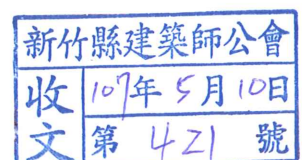 新竹縣建築師公會
收文
107年5月10日
第 421 號